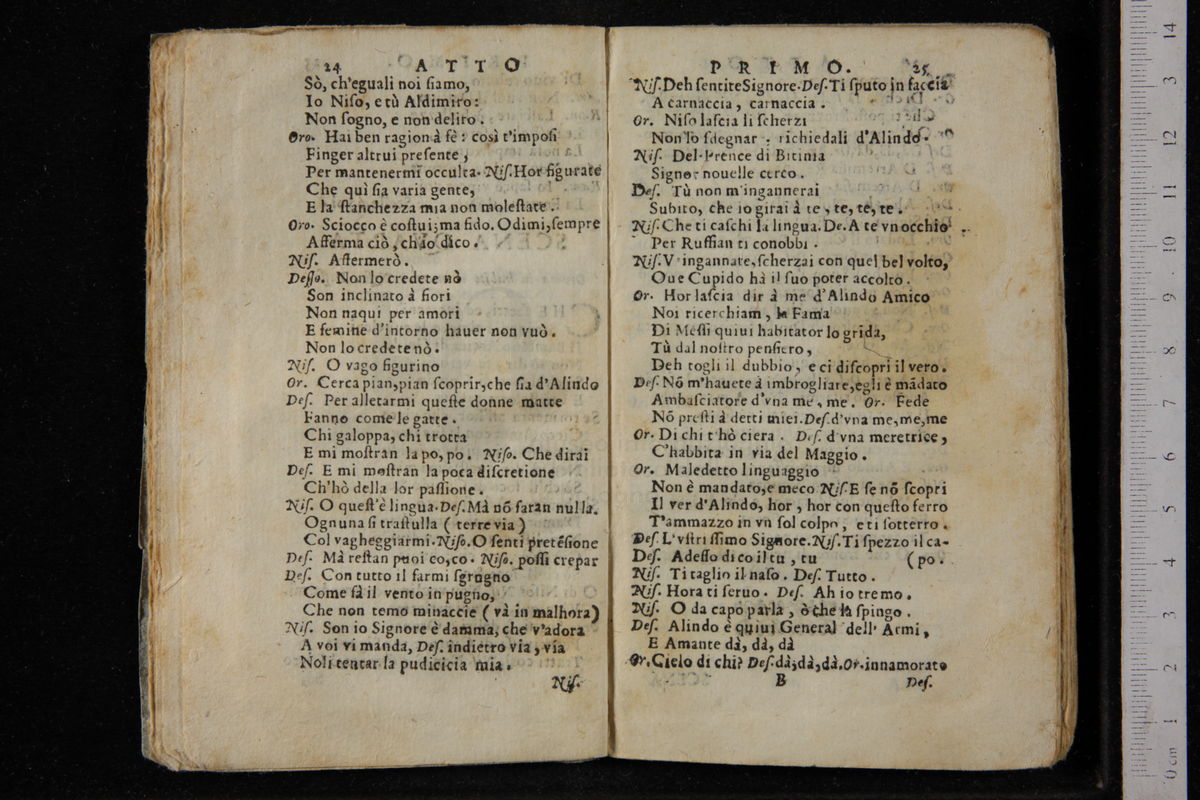 24 ATTO
Sò, ch'eguali noi ſiamo,
Io Niſo, e tù Aſdimiro:
Non ſogno, e non deliro.
Oro. Hai ben ragion à fè: così t'impoſi
Finger altrui preſente,
Per mantenermi occulta. Niſ. Hor figurate
Che quì ſia varia gente,
E la ſtanchezza mia non moleſtate.
Oro. Sciocco è coſtui; ma fido. Odimi, ſempre
Afferma ciò, ch'io dico.
Niſ. Affermerò.
Deſſo. Non lo credete nò
Son inclinato à fiori
Non naqui per amori
E femine d'intorno hauer non vuò.
Non lo credete nò.
Niſ. O vago figurino
Or. Cerca pian, pian ſcoprir, che ſia d'Alindo
Deſ. Per alletarmi queſte donne matte
Fanno come le gatte.
Chi galoppa, chi trotta
E mi moſtran la po, po. Niſo. Che dirai
Deſ. E mi moſtran la poca diſcretione
Ch'hò della lor paſſione.
Niſ. O queſt'è lingua. Deſ. Mà nõ faran nulla.
Ognuna ſi traſtulla ( terre via )
Col vagheggiarmi. Niſo. O ſenti pretẽſione
Deſ. Mà reſtan puoi co, co. Niſo. poſſi crepar
Deſ. Con tutto il farmi ſgrugno
Come fà il vento in pugno,
Che non temo minaccie ( và in malhora)
Niſ. Son io Signore è damma, che v'adora
A voi vi manda, Deſ. indietro via, via
Noli tentar la pudicicia mia.
Niſ.
PRIMO. 25
Niſ. Deh ſentite Signore. Deſ. Ti ſputo in faccia
A carnaccia, carnaccia.
Or. Niſo laſcia li ſcherzi
Non lo ſdegnar: richiedali d'Alindo.
Niſ. Del Prence di Bitinia
Signor nouelle cerco.
Deſ. Tù non m'ingannerai
Subito, che io girai à te, te, te, te.
Niſ. Che ti caſchi la lingua. De. A te vn occhio
Per Ruffian ti conobbi.
Niſ. V'ingannate, ſcherzai con quel bel volto,
Oue Cupido hà il ſuo poter accolto.
Or. Hor laſcia dir à me d'Alindo Amico
Noi ricerchiam, la Fama
Di Meſſi quiui habitator lo grida,
Tù dal noſtro penſiero,
Deh togli il dubbio, e ci diſcopri il vero.
Deſ. Nõ m'hauete à imbrogliare, egli è mãdato
Ambaſciatore d'vna me, me. Or. Fede
Nõ preſti à detti miei. Deſ. d'vna me, me, me
Or. Di chi t'hò ciera. Deſ. d'vna meretrice,
C'habbita in via del Maggio.
Or. Maledetto linguaggio
Non è mandato, e meco Niſ. E ſe nõ ſcopri
Il ver d'Alindo, hor, hor con queſto ferro
T'ammazzo in vn ſol colpo, e ti ſotterro.
Deſ. L'vſtriſſimo Signore. Niſ. Ti ſpezzo il ca-
Deſ. Adeſſo dico il tu, tu (po.
Niſ. Ti taglio il naſo. Deſ. Tutto.
Niſ. Hora ti ſeruo. Deſ. Ah io tremo.
Niſ. O da capo parla, ò che la ſpingo.
Deſ. Alindo è quiui General dell' Armi,
E Amante dà, dà, dà
Or. Cielo di chi? Deſ. dà, dà, dà. Or. innamorato
B Deſ.
0 cm 1 2 3 4 5 6 7 8 9 10 11 12 13 14